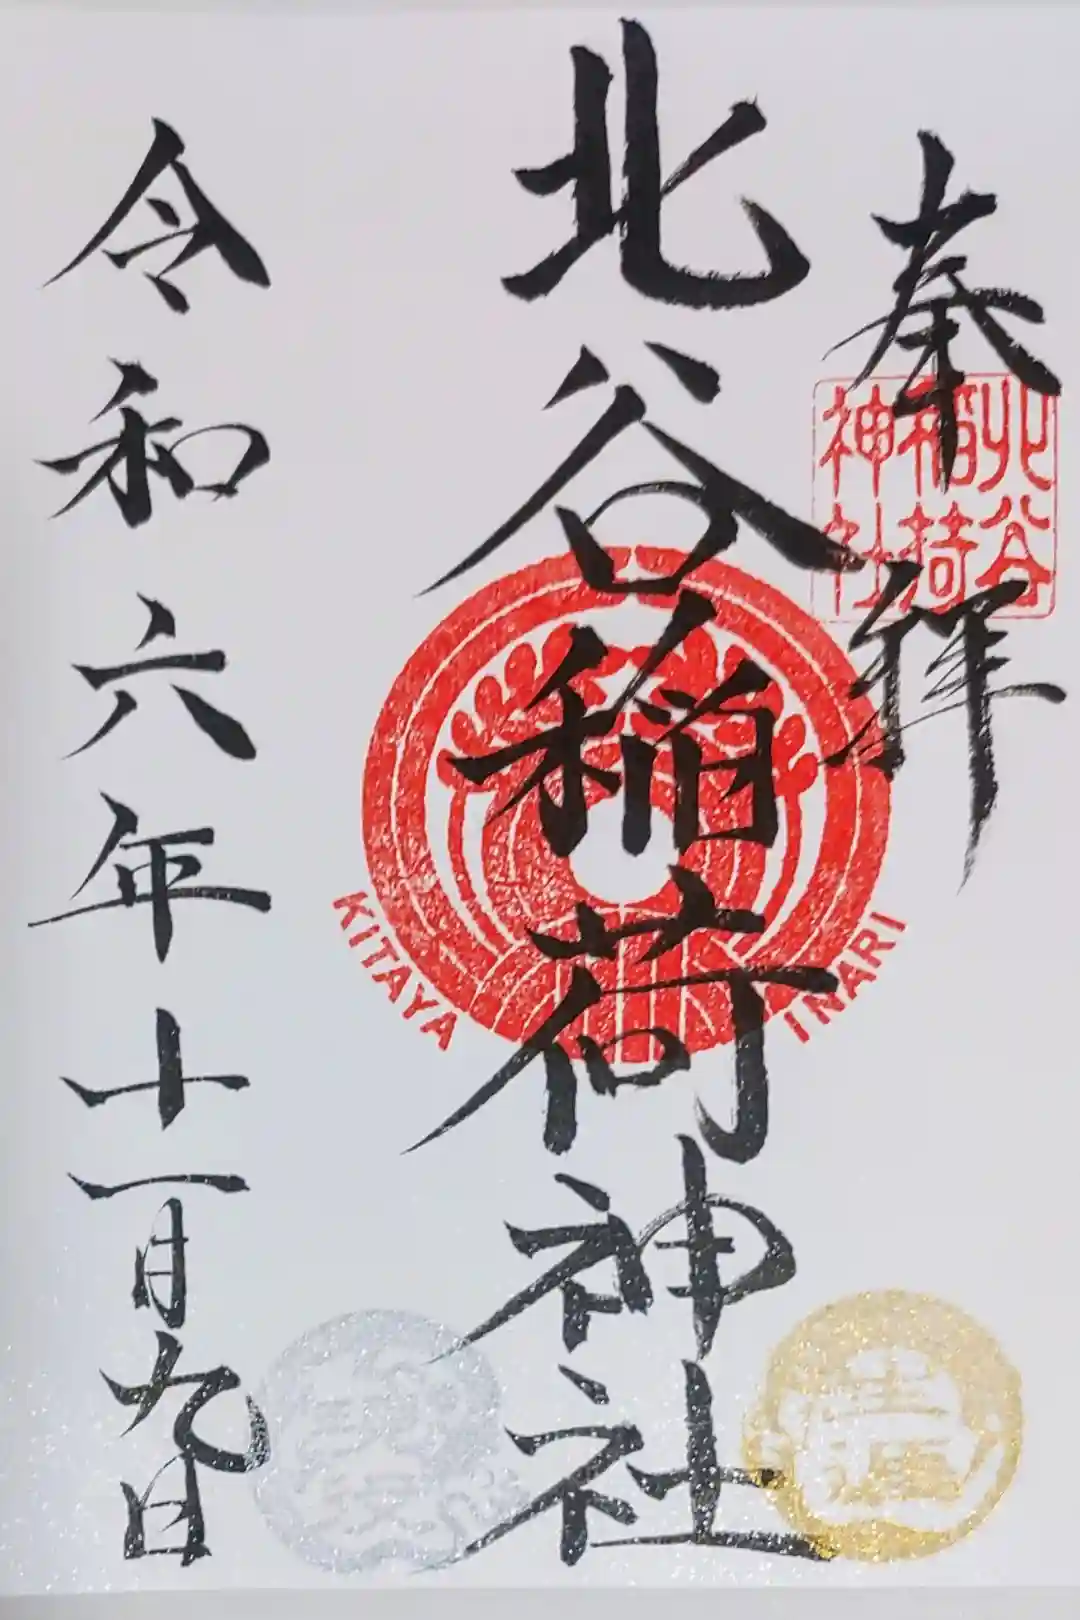 奉拝
北谷
稲荷
神社
北谷稲荷神社
KITAYA INARI
令和六年十一月九日